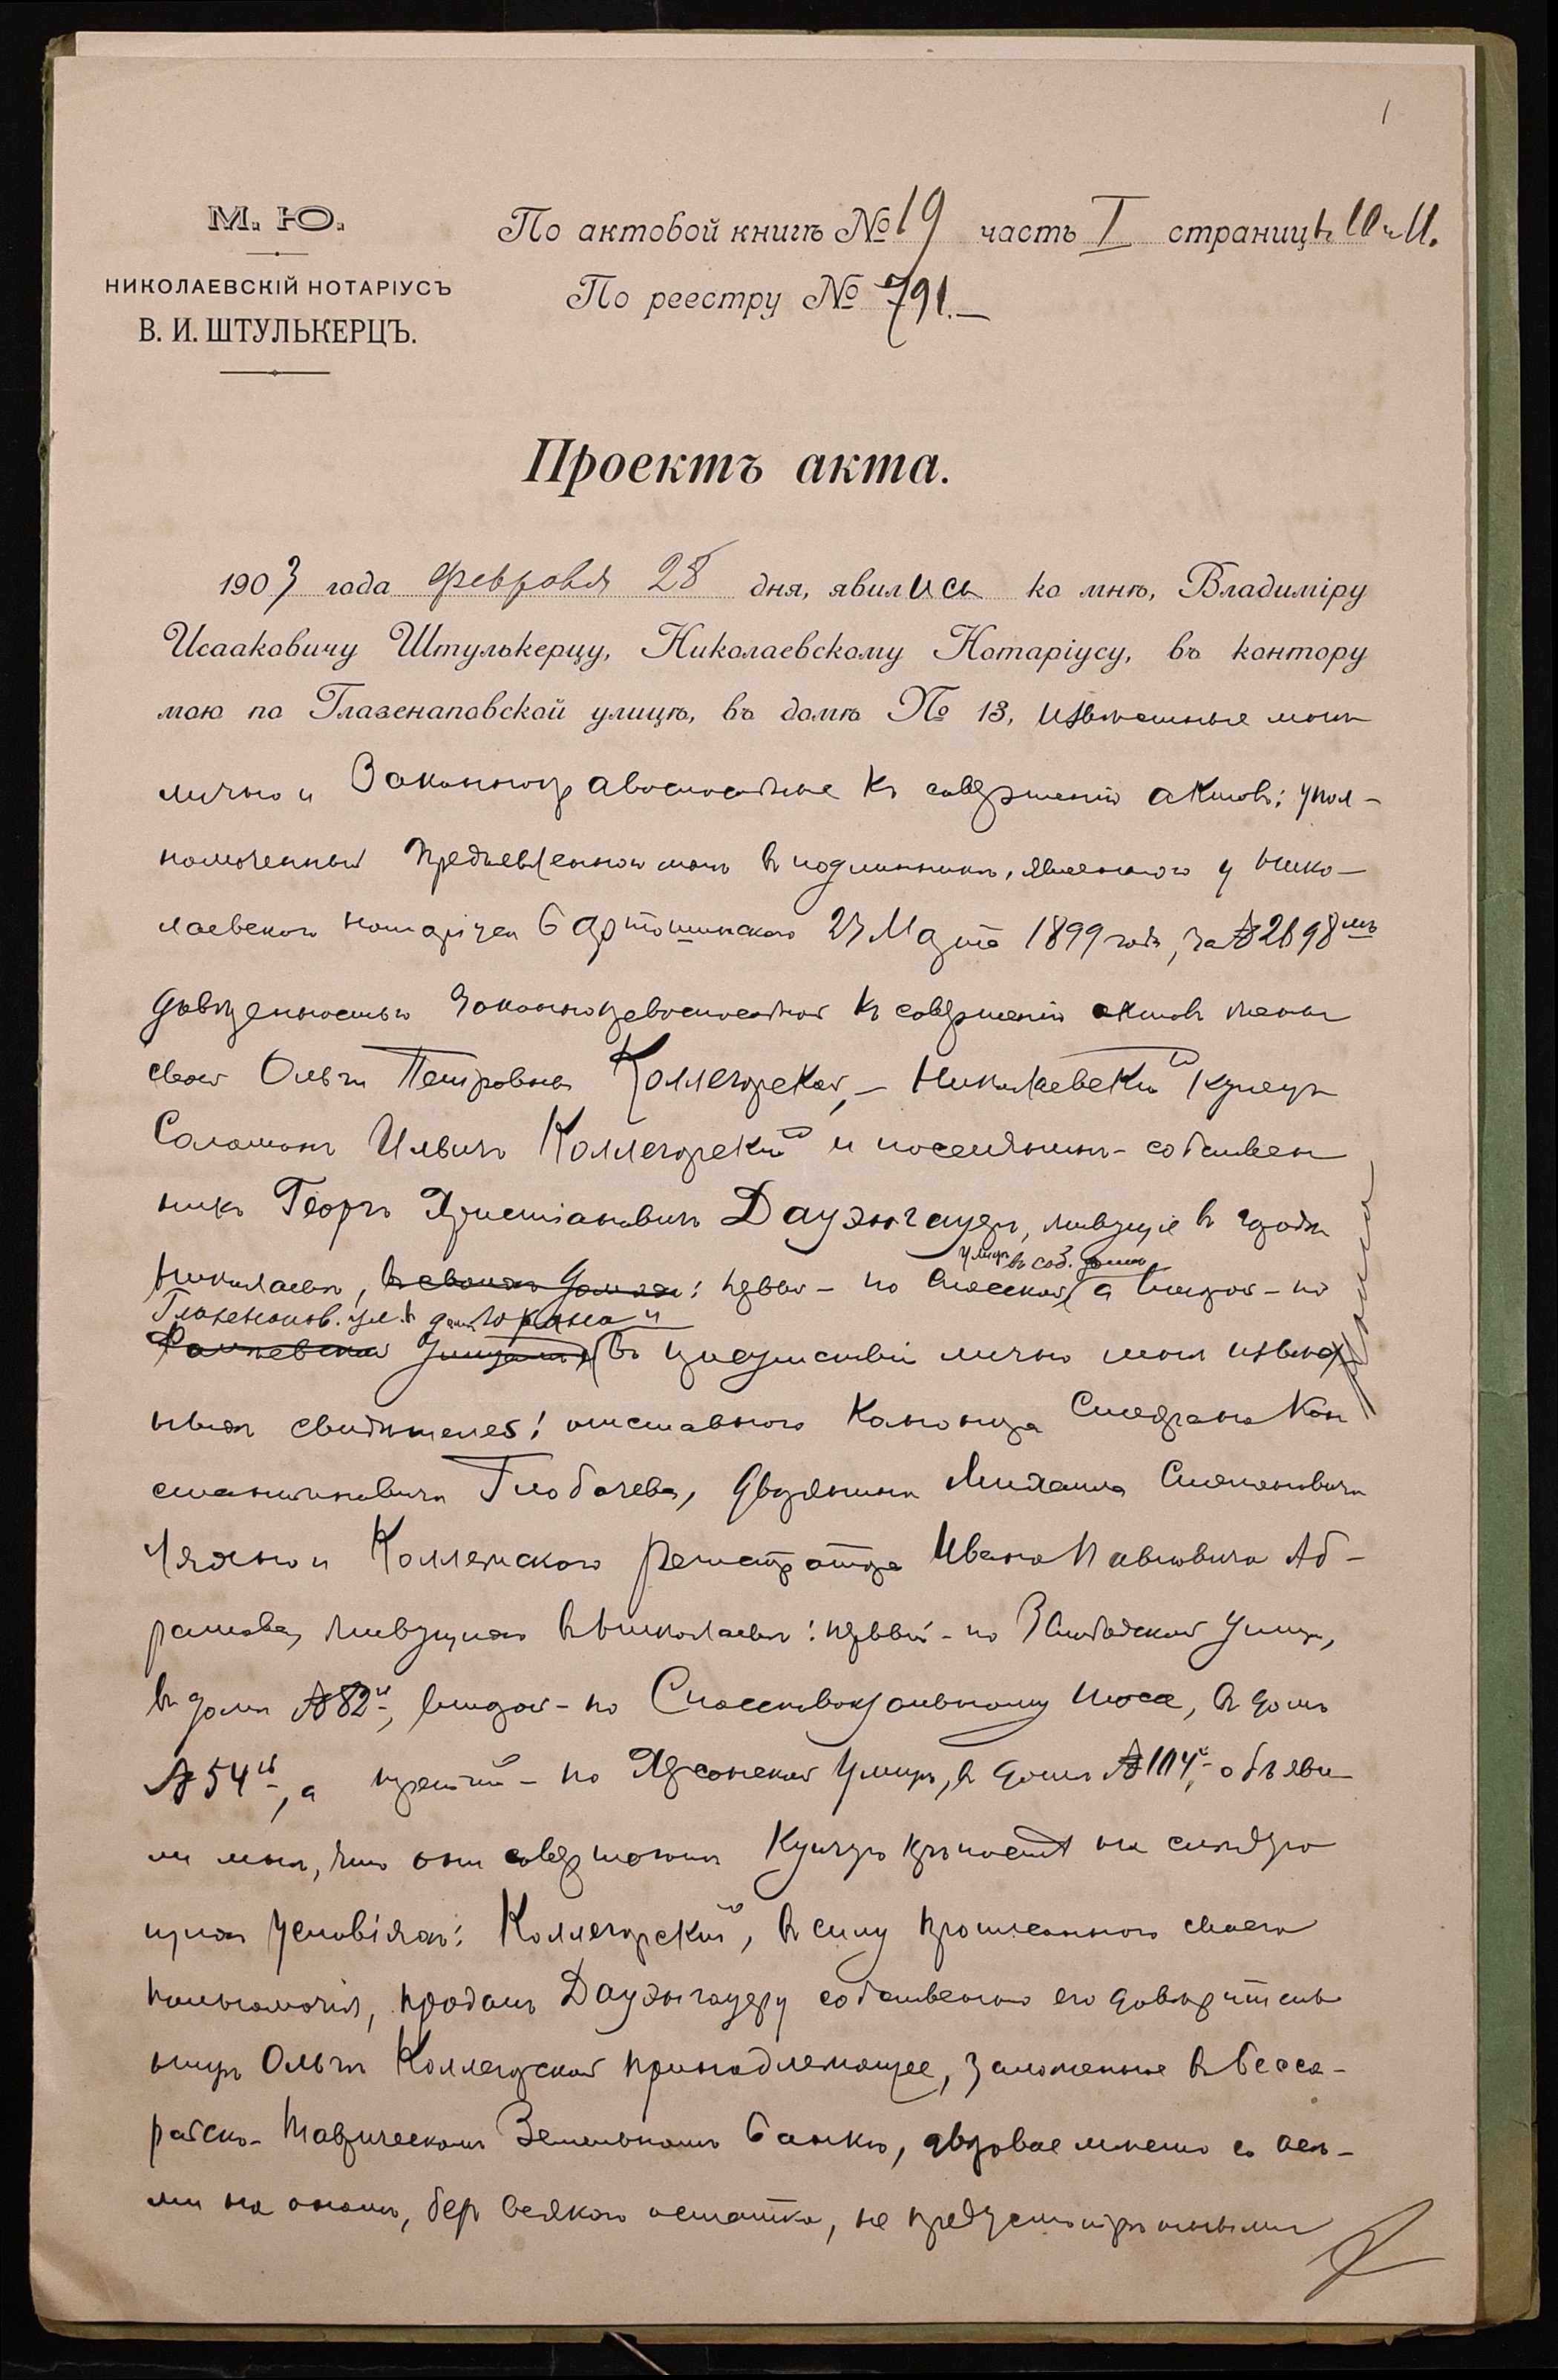 1
М. Ю.
НИКОЛАЕВСКІЙ НОТАРІУСЪ
В. И. ШТУЛЬКЕРЦЪ.
По актовой книгѣ № 19 часть I страницѣ 10 и 11.
По реестру № 791.—
Проектъ акта.
1903 года Февраля 28 дня, явились ко мнѣ, Владиміру
Исааковичу Штулькерцу, Николаевскому Нотаріусу, въ контору
мою по Глазенаповской улицѣ, въ домѣ № 13, извѣстные мнѣ
лично и законноправоспособные къ совершенію актовъ: упол-
номоченный предъявленной мнѣ въ подлинникѣ, явленной у Нико-
лаевскаго нотаріуса Бартошинскаго 23 Марта 1899 года, за № 2698мъ
довѣренностью законноправоспособной къ совершенію актовъ жены
своей Ольги Петровны Коллегорской, — Николаевскій купецъ
Соломонъ Ильичъ Коллегорскій и поселянинъ-собствен
никъ Георгъ Христіановичъ Дауэнгауеръ, живущіе въ городѣ
улицѣ въ соб. домѣ
Николаевѣ, въ своихъ домахъ: первый - по Спасской, а второй - по
Глазенапов. ул. въ домѣ
улицѣ въ присутствіи лично мнѣ извѣст
ныхъ свидѣтелей: отставного канонира Константиновича
Глобачева, дворянина Михаила Степановича
и Коллежскаго регистратора Ивана Павловича Аб-
рамова, живущихъ въ Николаевѣ: первый - по Слободской улицѣ,
въ домѣ № 82й, второй - по Спасско шоссе, въ домѣ
№ 54й, а третій - по Херсонской улицѣ, въ домѣ № 114й, объяви-
ли мнѣ, что они совершаютъ купчую крѣпость на слѣдую
щихъ условіяхъ: Коллегорскій, въ силу прописаннаго своего
полномочія, продалъ Дауэнгауеру собственно его довѣритель
ницѣ Ольгѣ Коллегорской принадлежащее, заложенное въ Бесса-
рабско-Таврическомъ Земельномъ банкѣ, дворовое мѣсто со всѣ-
ми на ономъ, безъ всякаго остатка, не предусмотрѣнными